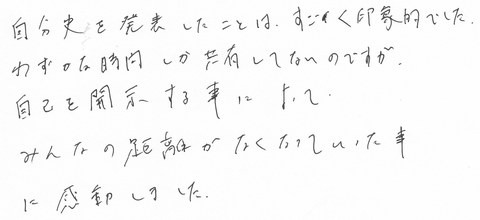 自分史を発表したことは、すごく印象的でした。
わずかな時間しか共有してないのですが、
自己を開示する事によって、
みんなの距離がなくなっていった事
に感動しました。